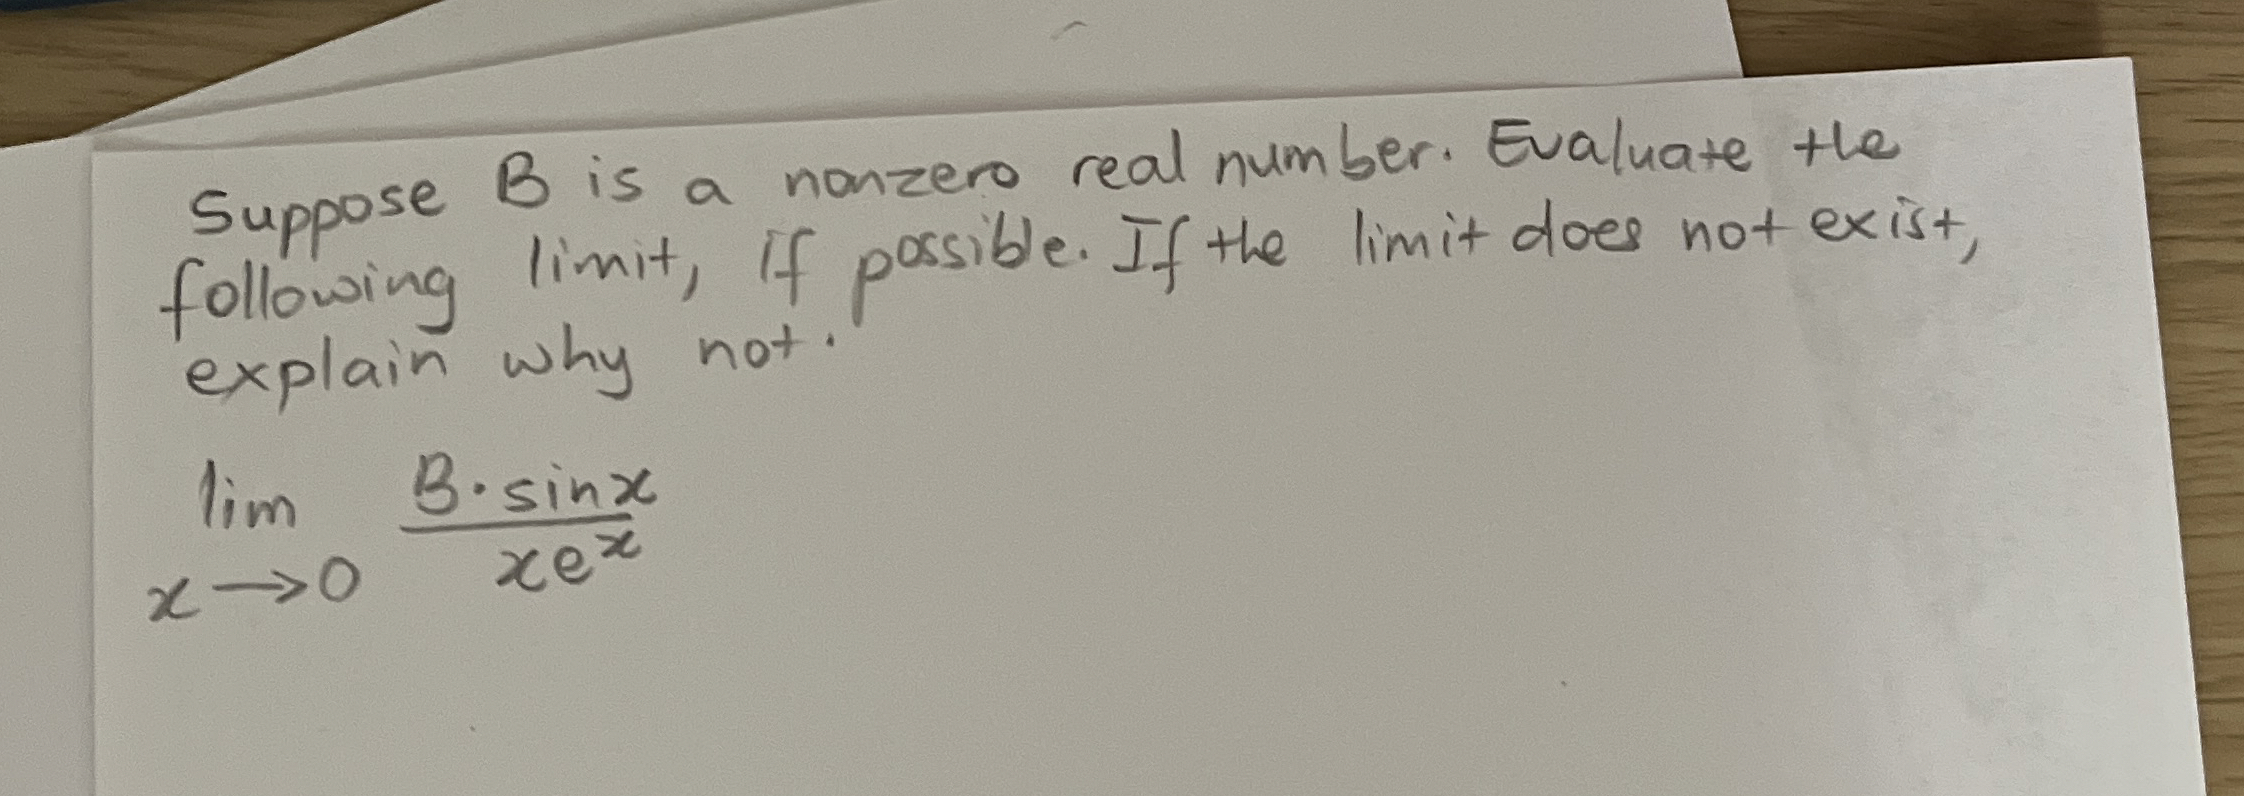 Suppose B is a nonzero real number. Evaluate the
following limit, if possible. If the limit does not exist,
explain why not.
lim B·sinx
x→0 xeˣ